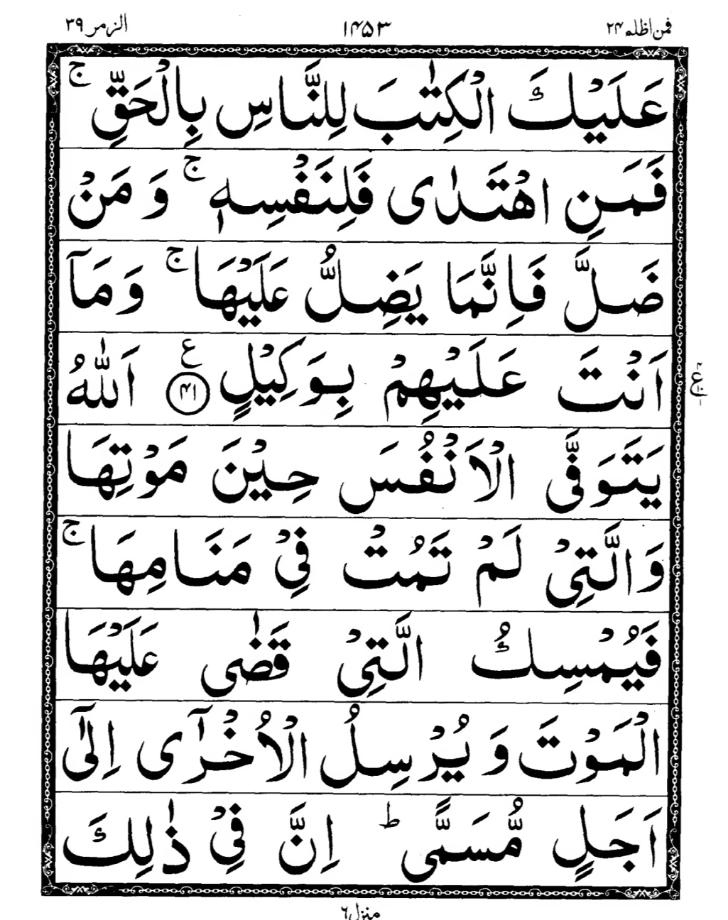 الزمر ٣٩ ١٤٥٣ فمن اظلم ٢٤
عَلَيْكَ الْكِتٰبَ لِلنَّاسِ بِالْحَقِّ ۚ
فَمَنِ اهْتَدٰى فَلِنَفْسِهٖ ۚ وَ مَنْ
ضَلَّ فَاِنَّمَا يَضِلُّ عَلَيْهَا ۚ وَمَاۤ
اَنْتَ عَلَيْهِمْ بِوَكِيْلٍ ﴿۴۱﴾ ع اَللّٰهُ
يَتَوَفَّى الْاَنْفُسَ حِيْنَ مَوْتِهَا
وَالَّتِيْ لَمْ تَمُتْ فِيْ مَنَامِهَا ۚ
فَيُمْسِكُ الَّتِيْ قَضٰى عَلَيْهَا
الْمَوْتَ وَ يُرْسِلُ الْاُخْرٰۤى اِلٰۤى
اَجَلٍ مُّسَمًّى ؕ اِنَّ فِيْ ذٰلِكَ
منزل ٦